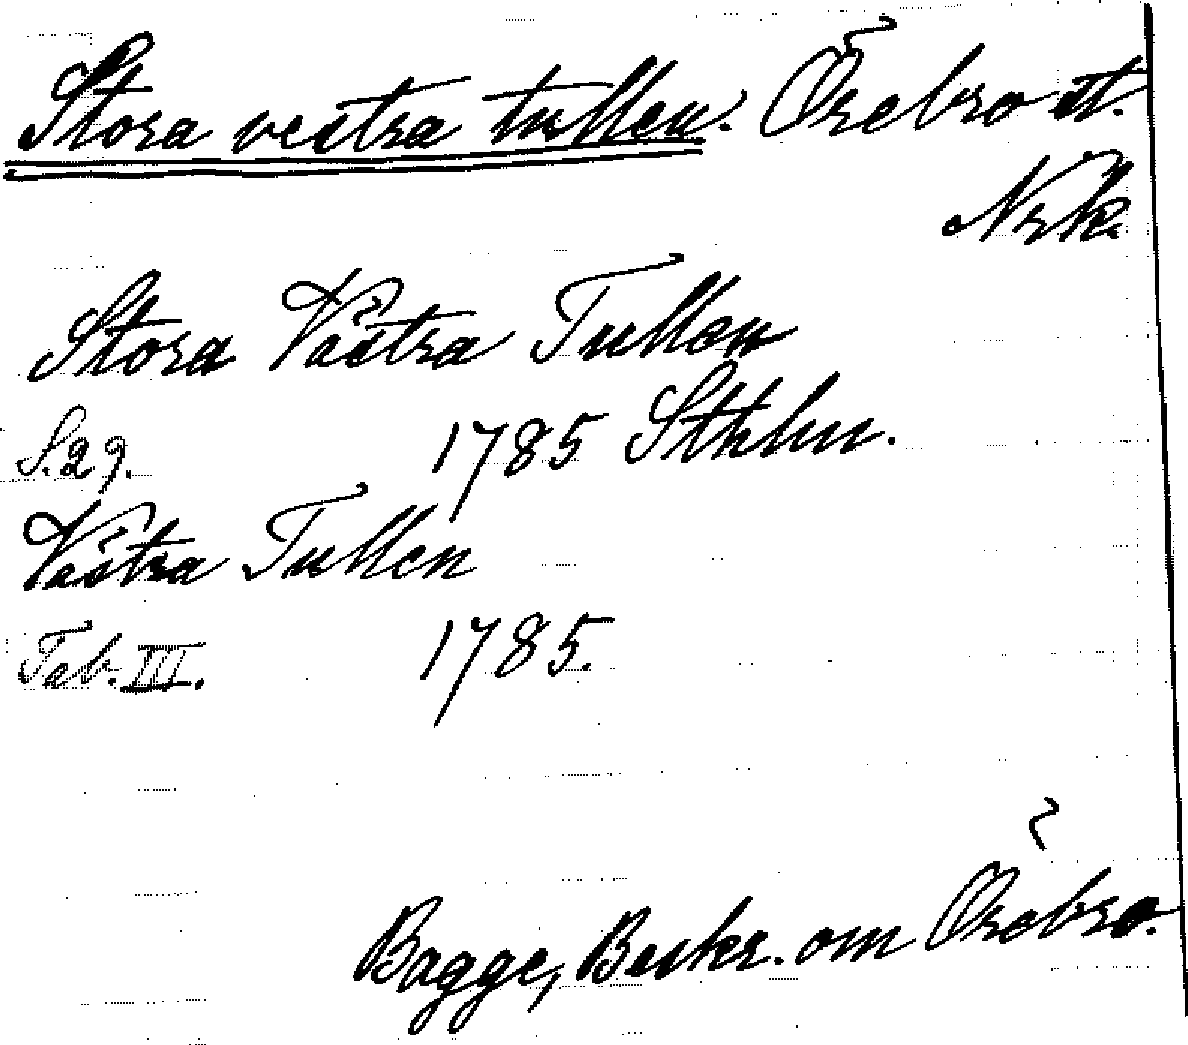 Stora vestra tullen. Örebro st.
Nrk.
Stora Västra Tullen
S. 29. 1785 Sthlm.
Västra Tullen
Tab. III. 1785.
Bagge, Beskr. om Örebro.